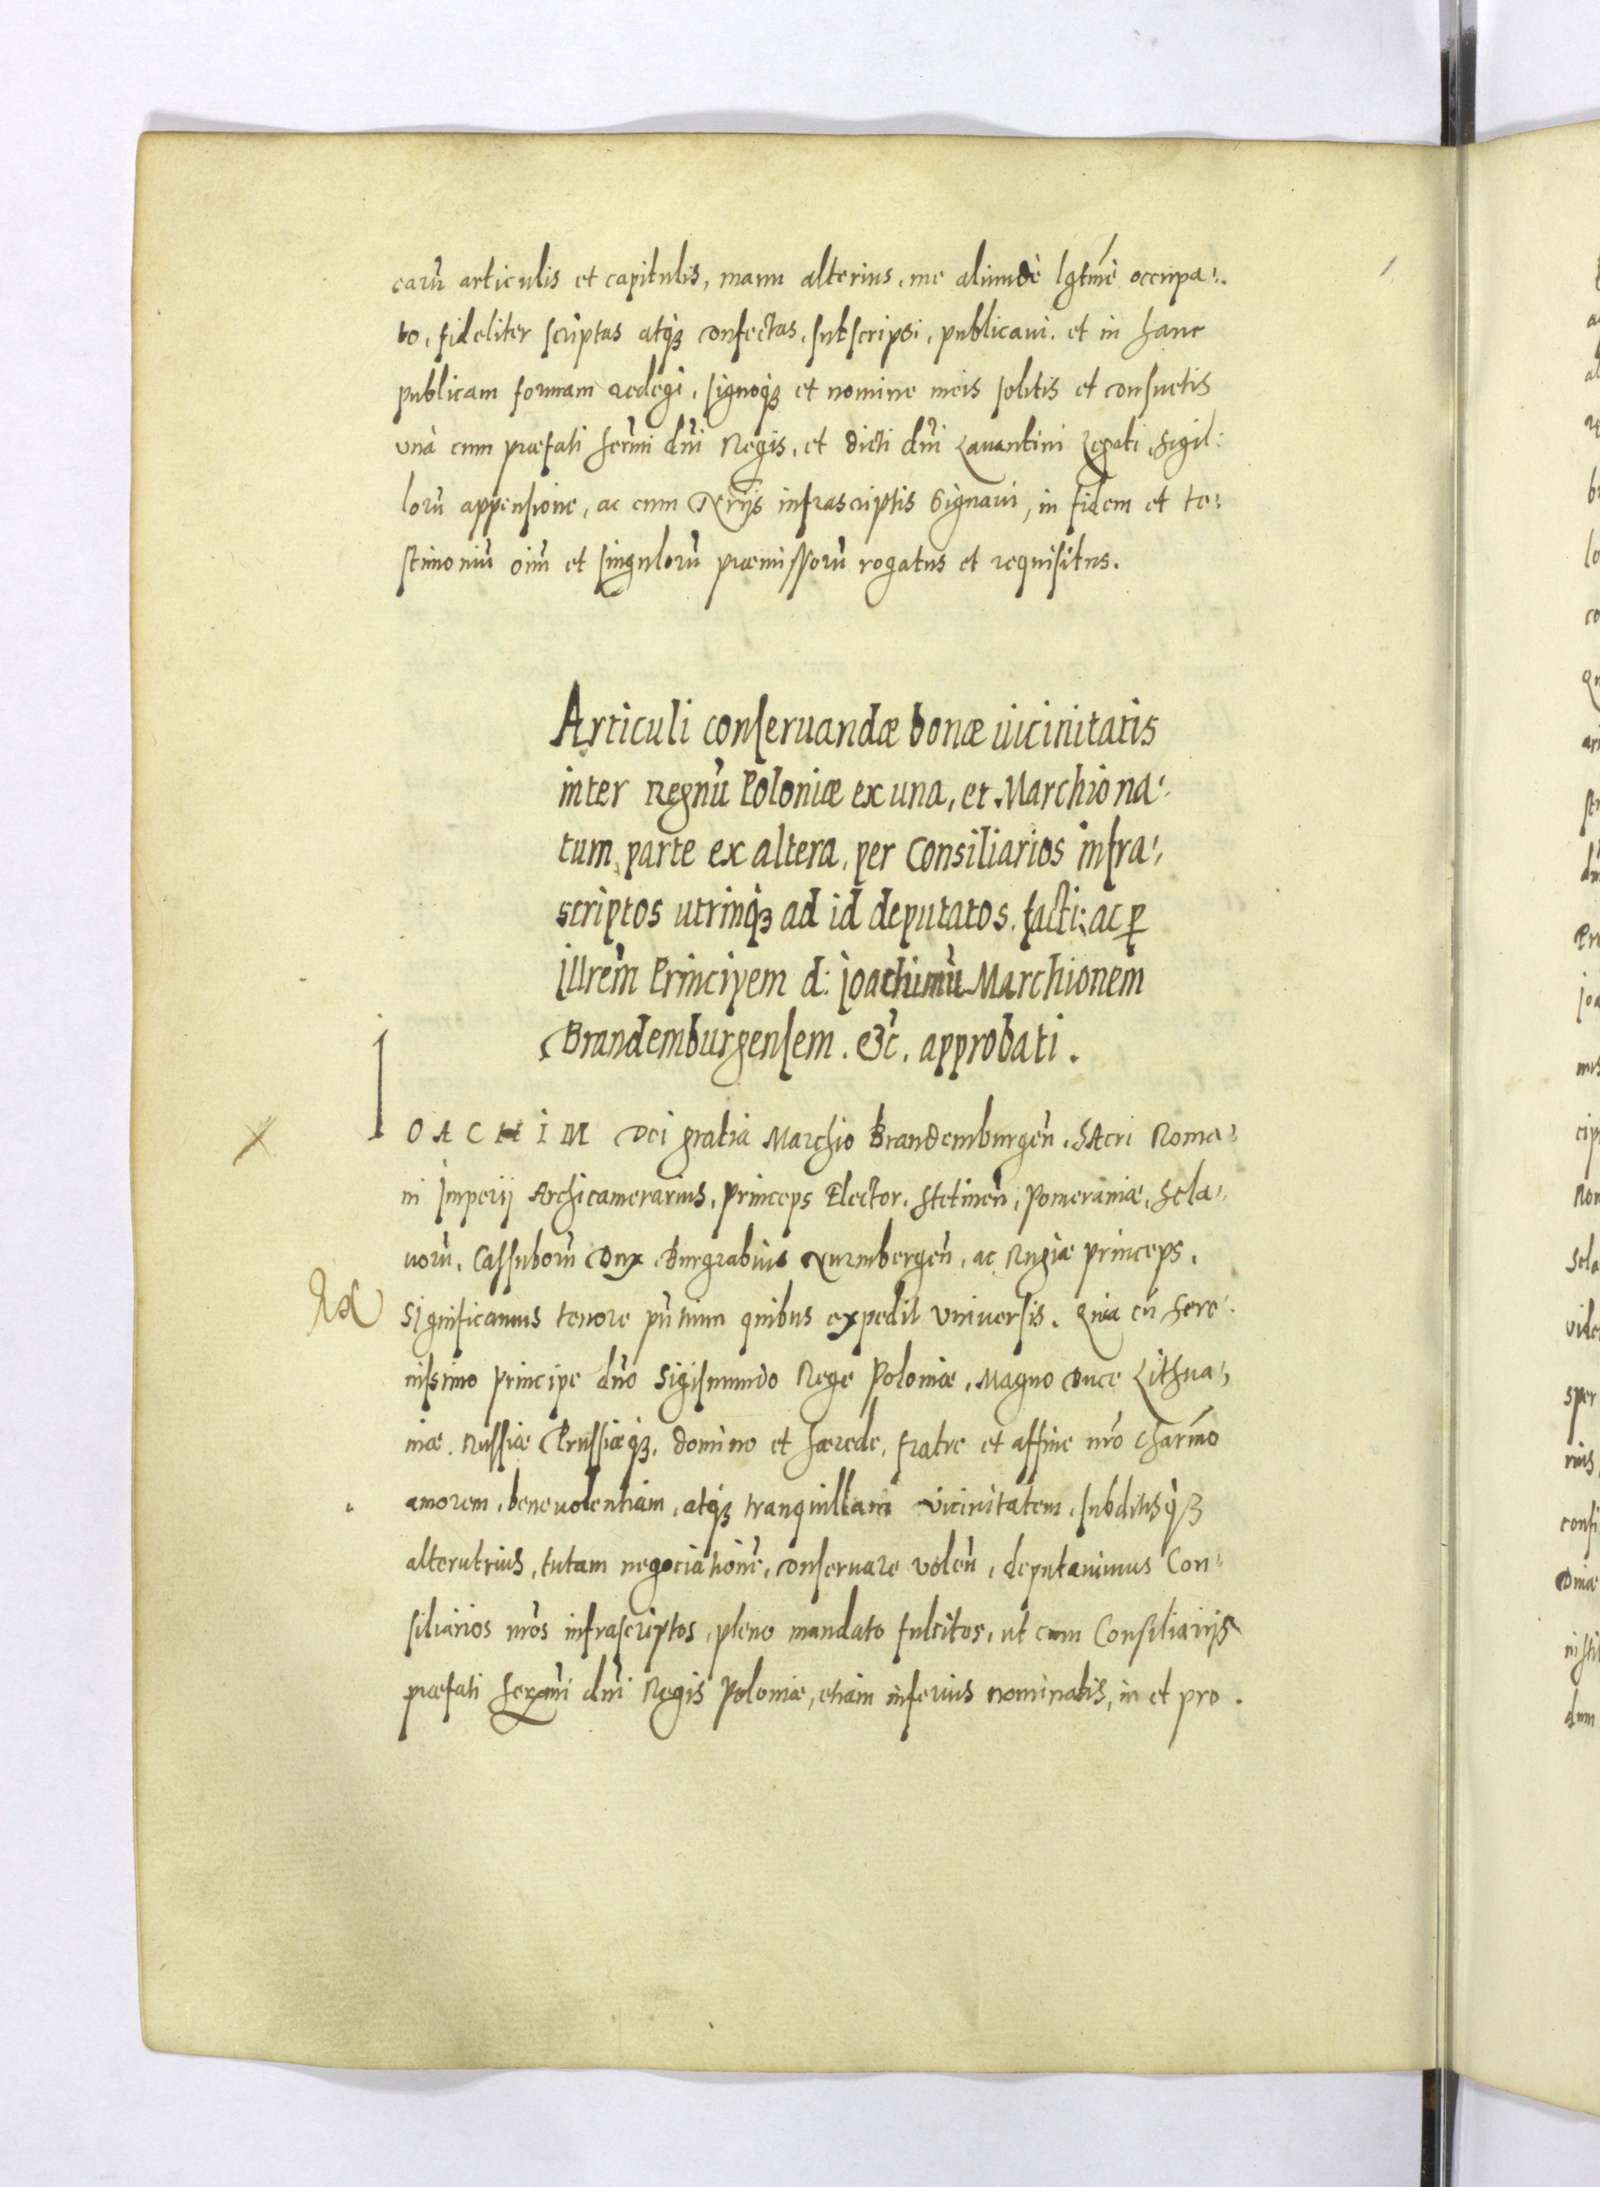 earũ articulis et capitulis, manu alterius, me aliundè lgtmè occupa:
to, fideliter scriptas atq3 confectas, subscripsi, publicaui. et in hanc
publicam formam redegi, signoq3 et nomine meis solitis et consuetis
unà cum præfati sermi dñi Regis, et dicti dñi Lauantini Legati, sigil:
lorũ appensione, ac cum Notrijs infrascriptis signaui, in fidem et te:
stimoniũ oim̃ et singulorũ præmissorũ rogatus et requisitus.
Articuli conseruandæ bonæ uicinitatis
inter Regnũ Poloniæ ex una, et Marchiona:
tum, parte ex altera, per Consiliarios infra:
scriptos utrinq3 ad id deputatos. facti: ac ꝑ
Illrem̃ Principem d: Joachimũ Marchionem
Brandemburgensem. &c̃. approbati.
IOACHIM Dei gratia Marchio Brandemburgeñ. SAcri Roma:
ni Imperij Archicamerarius, Princeps Elector, Stetineñ, Pomeraniæ, Scla:
uorũ, Cassuborũ Dux Burgrabius Nurmbergeñ, ac Rugiæ princeps.
Significamus tenore pñtium quibus expedit vniuersis. Quia cũ sere:
nissimo principe dño Sigismundo Rege Poloniæ, Magno Duce Lithua:
niæ. Russiæ Prussiæq3, domino et hærede, fratre et affine nr̃o charm̃o
amorem, beneuolentiam, atq3 tranquillam vicinitatem, subditisq3
alterutrius, tutam negociationẽ, conseruare voleñ, deputauimus Con:
siliarios nr̃os infrascriptos, pleno mandato fulcitos, ut cum Consiliarijs
præfati serxmi dñi Regis Poloniæ, etiam inferius nominatis, in et pro.